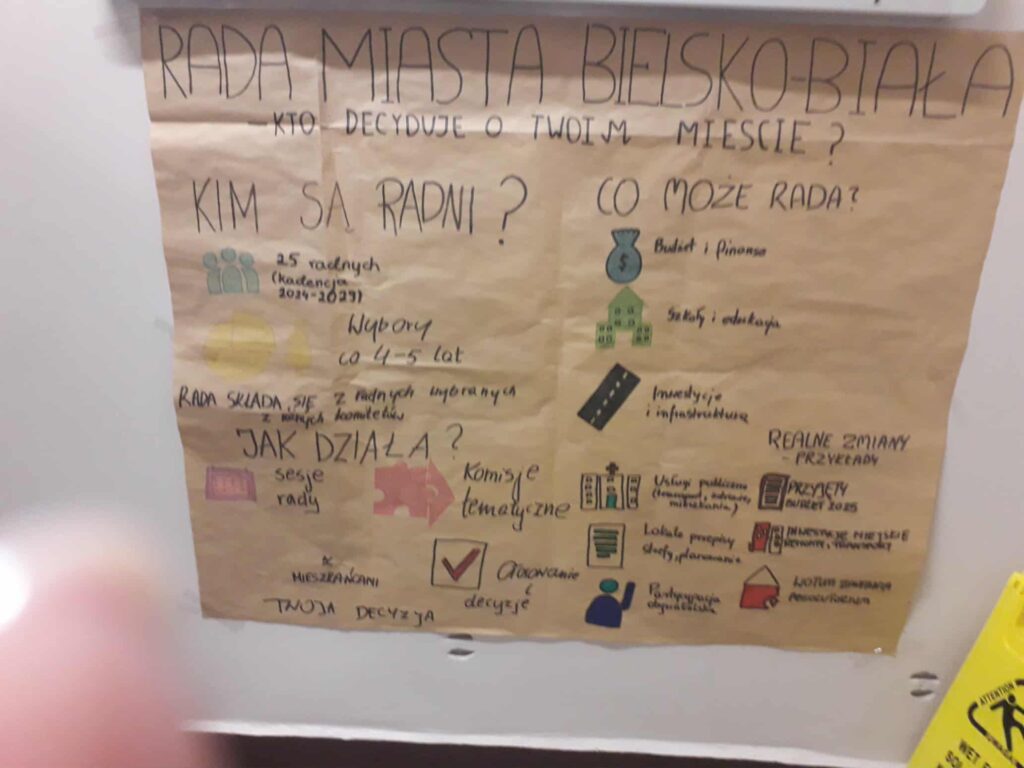 RADA MIASTA BIELSKO-BIAŁA
-KTO DECYDUJE O TWOIM MIEŚCIE?
KIM SĄ RADNI?
25 radnych
(kadencja
2024-2029)
Wybory
co 4-5 lat
RADA SKŁADA SIĘ z radnych wybranych
z komitetów
JAK DZIAŁA?
sesje
rady
Komisje
tematyczne
MIESZKAŃCAMI
Głosowanie
i
decyzje
TWOJA DECYZJA
CO MOŻE RADA?
Budżet i finanse
$
Szkoły i edukacja
Inwestycje
i infrastruktura
Usługi publiczne
(transport, zdrowie,
mieszkania)
Lokalne przepisy
planowanie
Partycypacja
obywatelska
REALNE ZMIANY
- PRZYKŁADY
PRZYJĘTY
BUDŻET 2025
INWESTYCJE MIEJSKIE
REMONTY, TRANSPORT
WOTUM
ATTENTION
WET